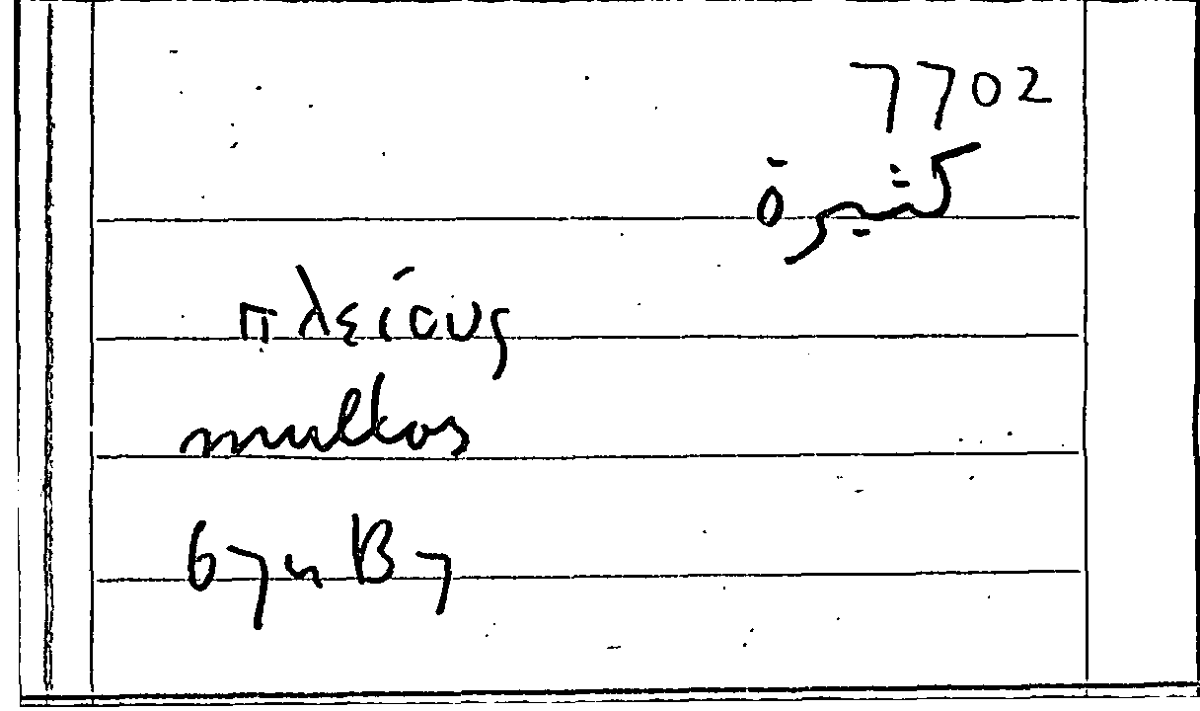 7702
كثيرة
πλείους
multos
67n B7